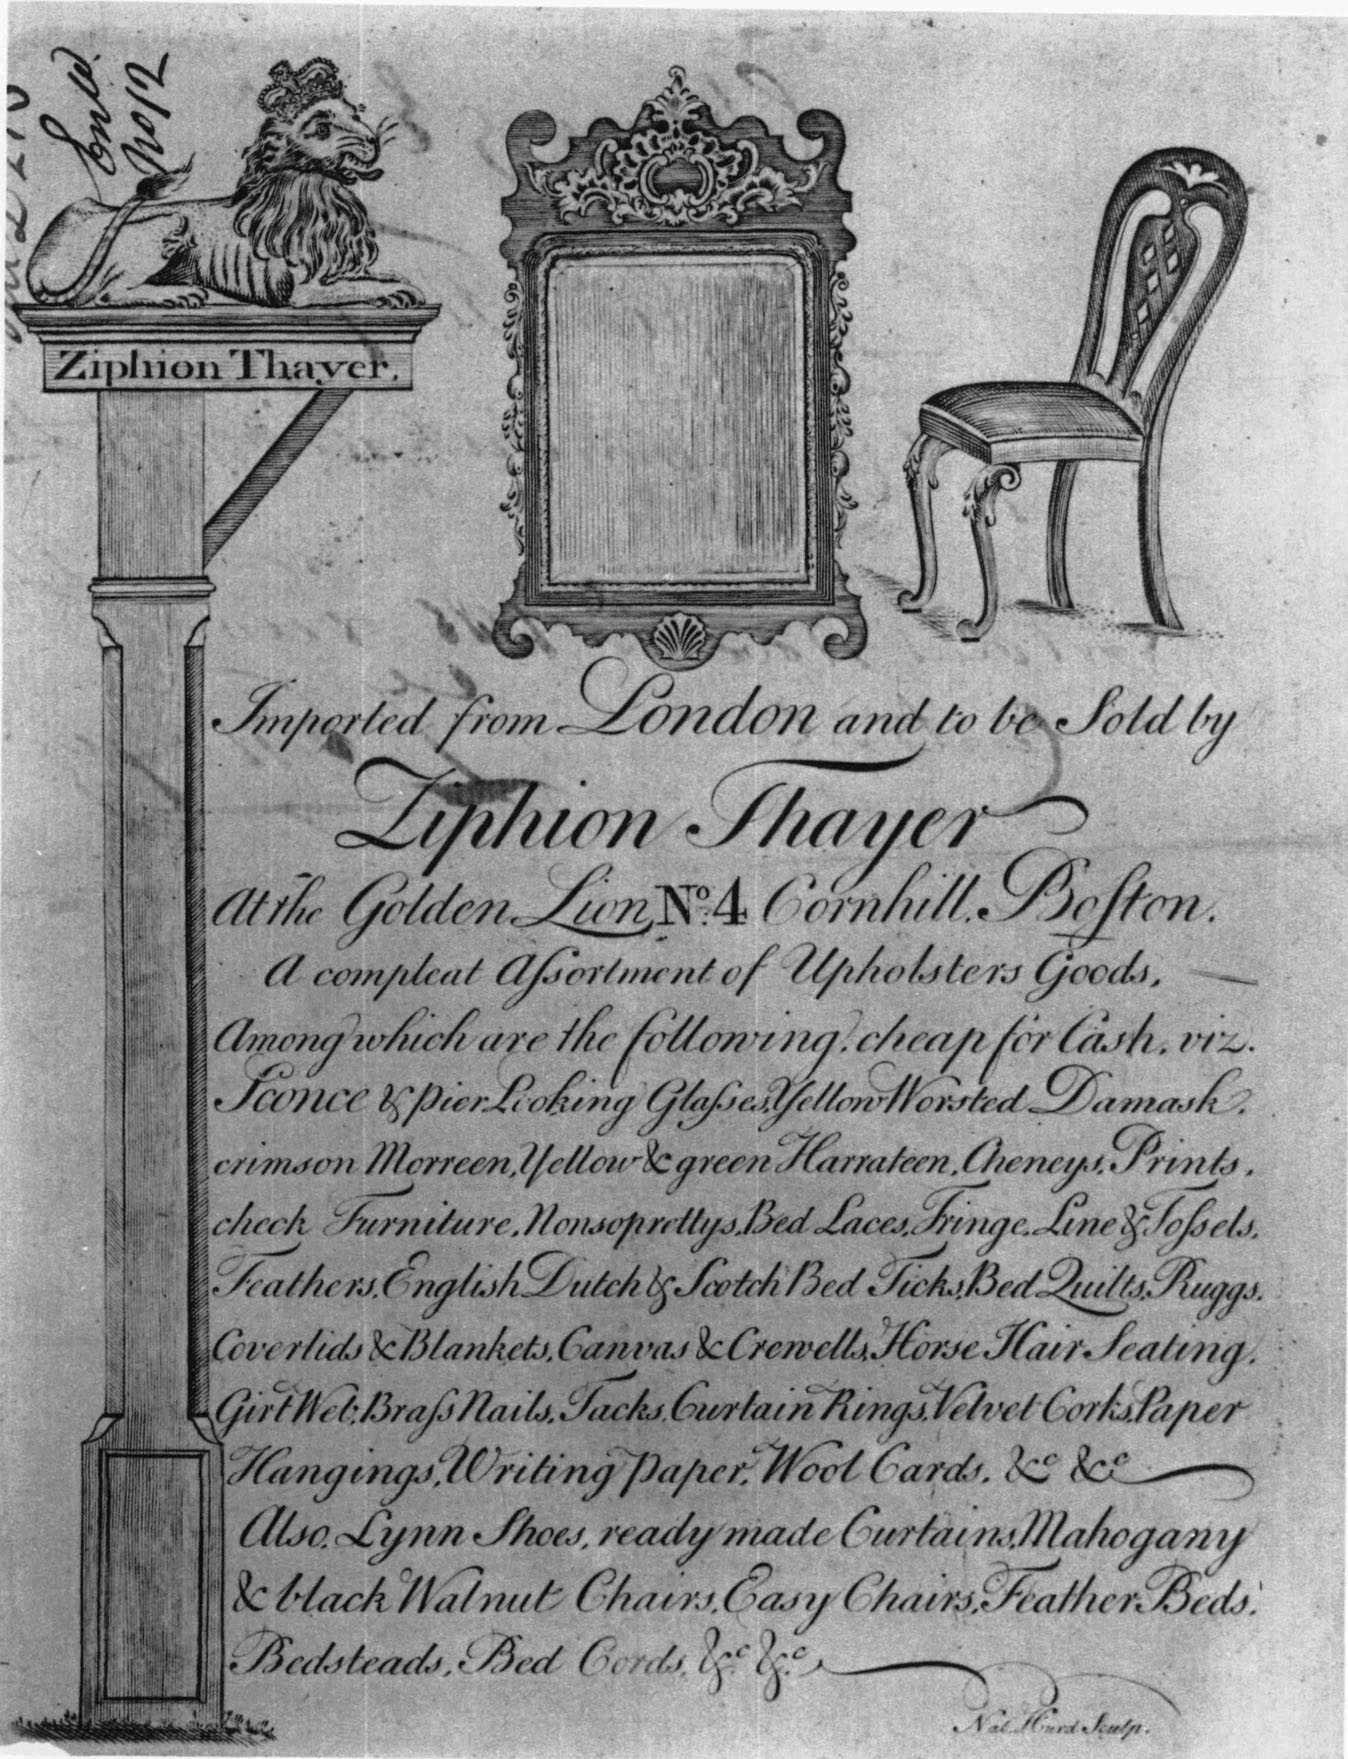 No 12
Ziphion Thayer.
Imported from London and to be Sold by
Ziphion Thayer
At the Golden Lion No. 4 Cornhill. Boſton.
A compleat Aſsortment of Upholsters Goods,
Among which are the following, cheap for Cash. viz.
Sconce & pier Looking Glaſses, Yellow Worsted Damask.
crimson Morreen, Yellow & green Harrateen, Cheneys, Prints.
check Furniture, Nonsoprettys, Bed Laces, Fringe, Line & Toſsels.
Feathers, English Dutch & Scotch Bed Ticks, Bed Quilts, Ruggs.
Coverlids & Blankets, Canvas & Crewells, Horse Hair Seating.
Girt Web, Braſs Nails, Tacks, Curtain Rings, Velvet Corks, Paper
Hangings, Writing paper, Wool Cards, &c &c
Also, Lynn Shoes, ready made Curtains, Mahogany
& black Walnut Chairs, Easy Chairs, Feather Beds.
Bedsteads, Bed Cords, &c &c
Nat. Hurd Sculp.